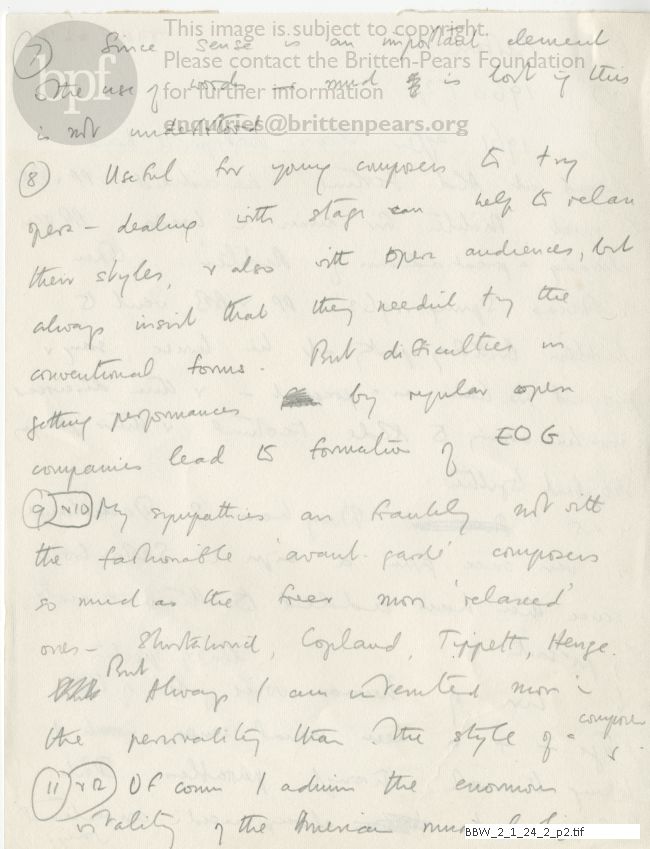 This image is subject to copyright.
Please contact the Britten-Pears Foundation
for further information
enquiries@brittenpears.org
bpf
7 Since sense is an important element
in the use of words — much is lost if this
is not understood
8 Useful for young composers to try
opera – dealing with stage can help to relax
their styles, & also with opera audiences, but
always insist that they needn't try the
conventional forms. But difficulties in
getting performances by regular opera
companies lead to formation of EOG
9 & 10 My sympathies are frankly not with
the fashionable 'avant-garde' composers
so much as the freer more 'relaxed'
ones – Shostakovich, Copland, Tippett, Henze.
But Always I am interested more in
the personality than the style of a composer
11 & 12 Of course I admire the enormous
vitality of the American
BBW_2_1_24_2_p2.tif